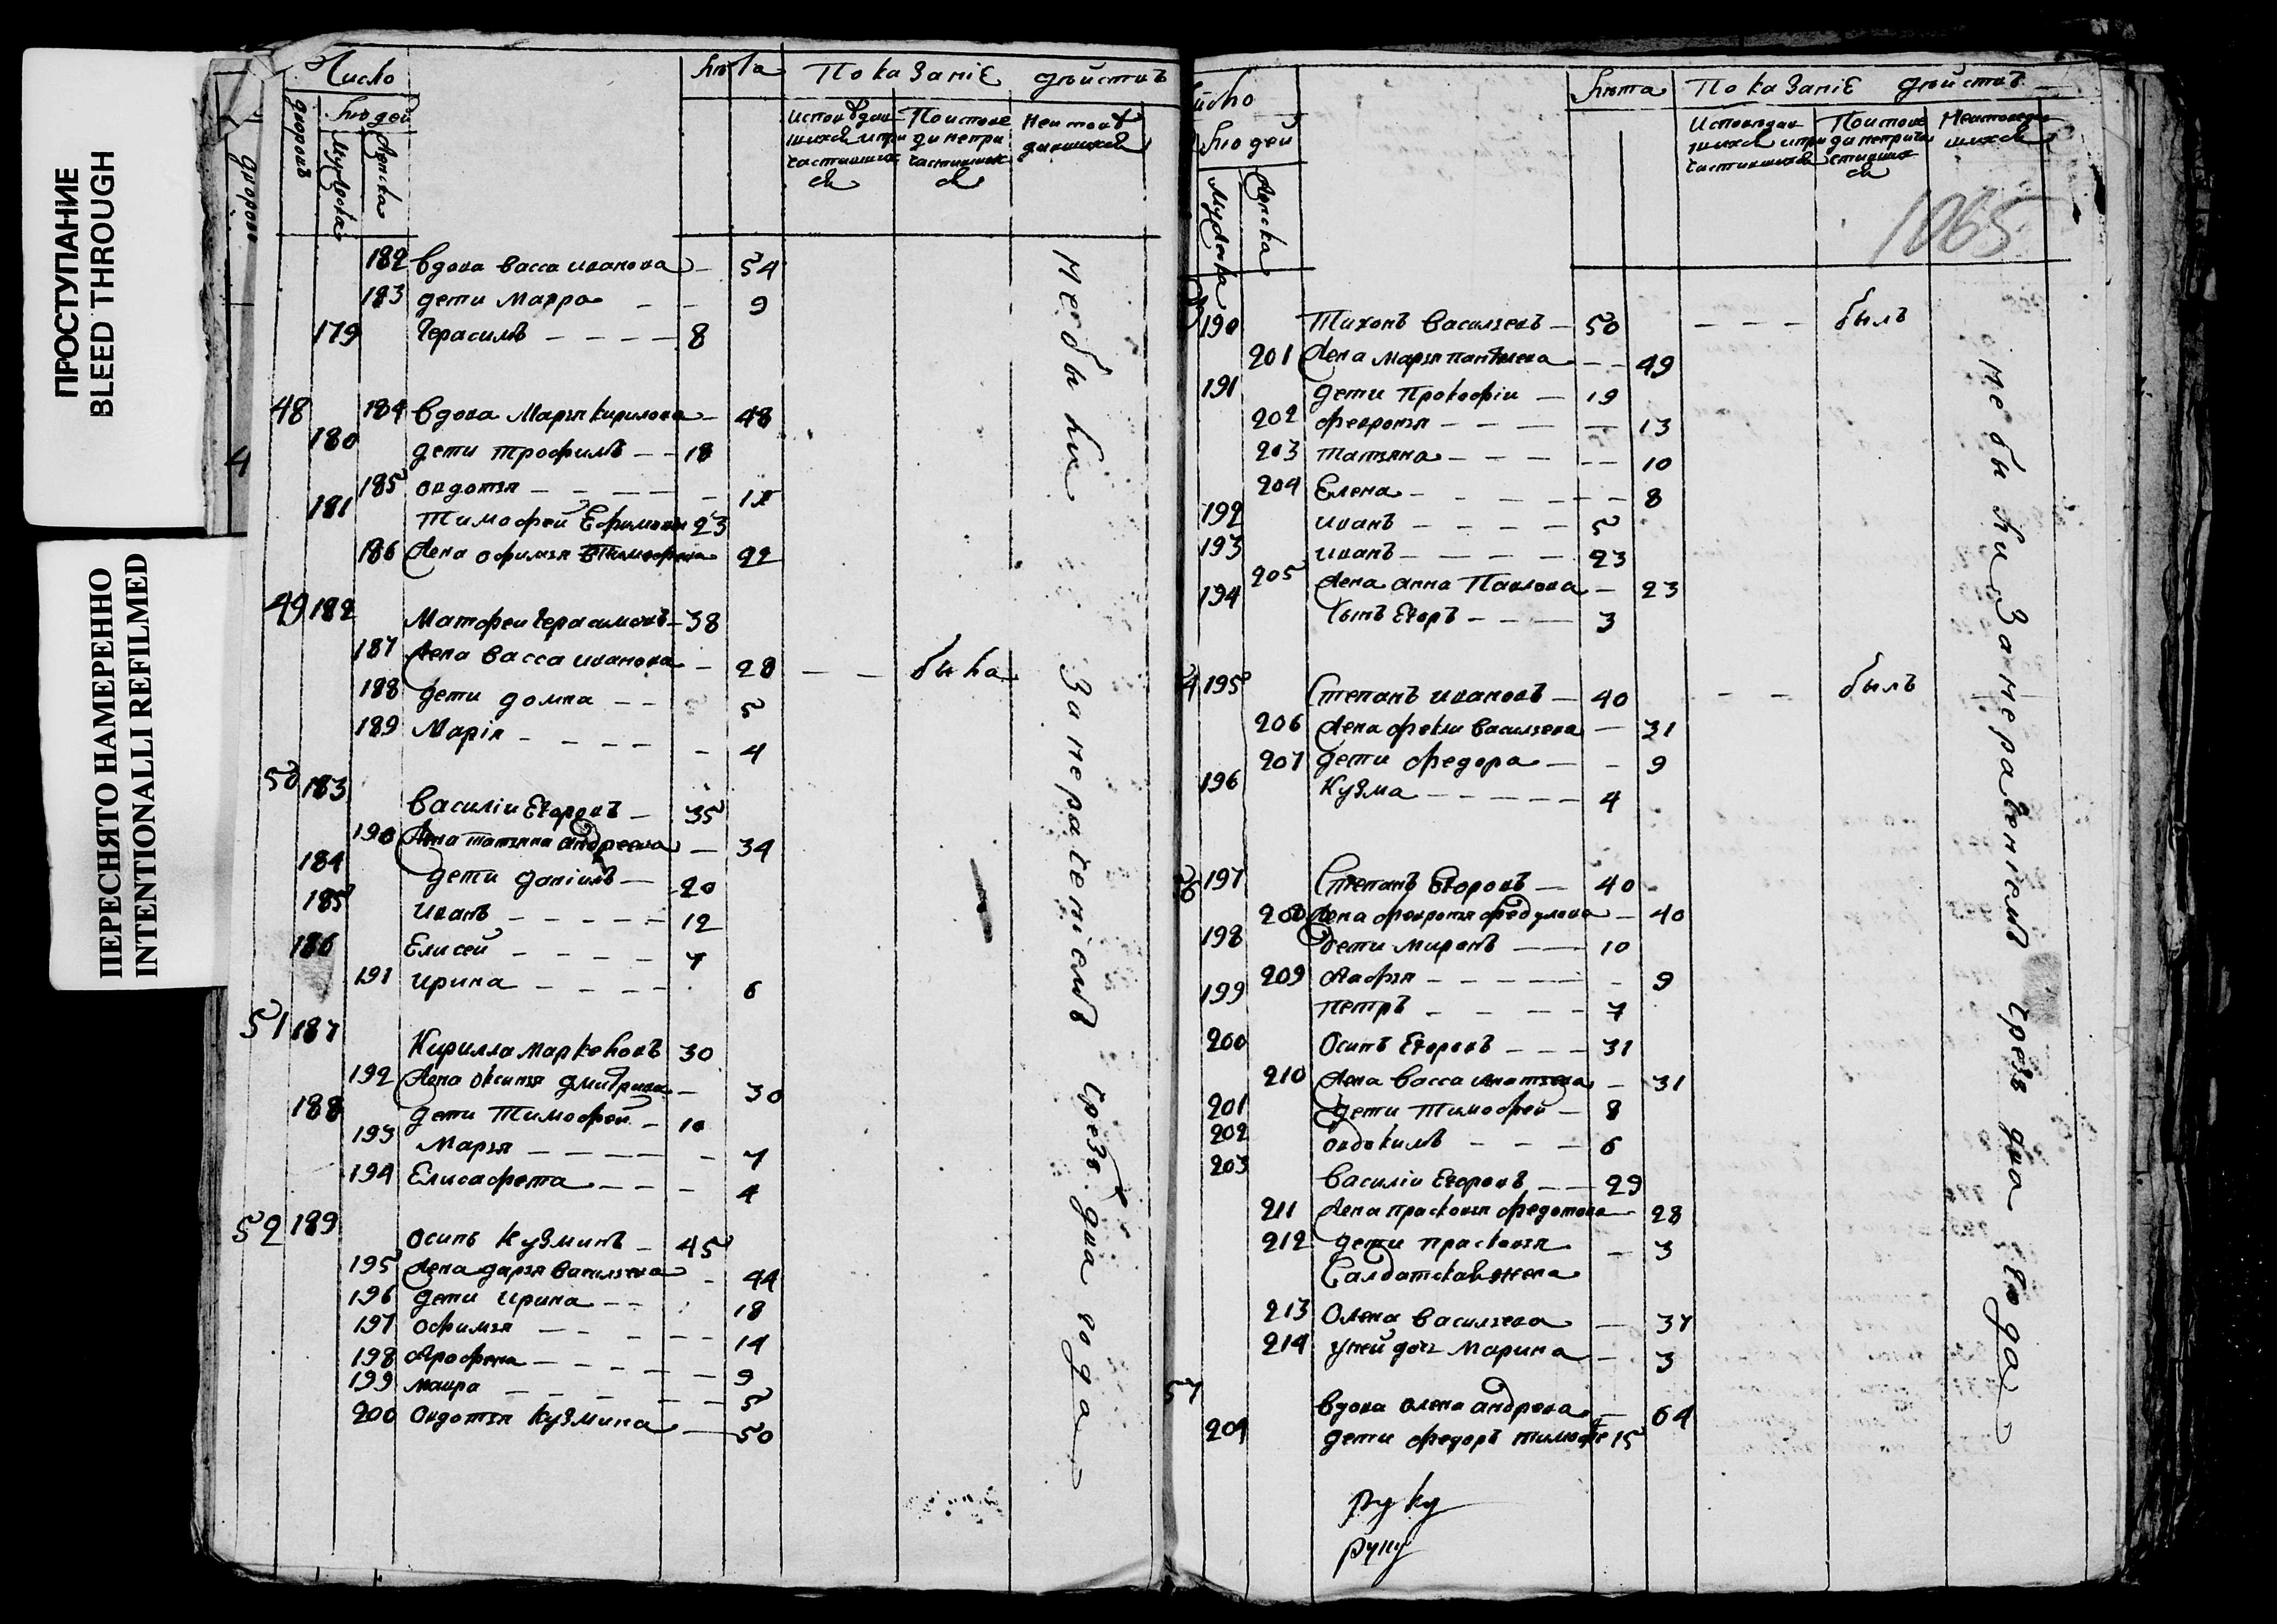 ПРОСТУПАНИЕ
BLEED THROUGH
ПЕРЕСНЯТО НАМЕРЕННО
INTENTIONALLI REFILMED
дворовъ
4
Число
лѣта
Показаніе действъ
дворовъ
людей
Мужеска
Женска
исповѣдав
шихся и при
частивших
ся
По испове
ди не при
частивших
ся
Не испов
давшихся
182 вдова васса иванова — 54
183 дети Марра — — 9
179 Герасимъ — — — — 8
48 184 вдова Марья кирилова — 48
180 дети трофимъ — — 18
185 овдотья — — — — —
181 Тимофей Ефимовъ 23
186 Жена офимья 22
49 182 Матфеи Герасимовъ — 38
187 Жена васса иванова — 28 — — была
188 дети домна — — 5
189 Марія — — — — — 4
50 183 василіи Егоровъ — 35
190 Жена татьяна андреева — 34
184 дети даніилъ — 20
185 иванъ — — — — — 12
186 Елисей — — — — 7
191 ирина — — — — 6
51 187 Кирилла маркеловъ 30
192 Жена оксинья дмитриева — 30
188 дети Тимофей — 10
193 Марья — — — — — 7
194 Елисафета — — — 4
52 189 осипъ Кузминъ — 45
195 Жена дарья васильева — 44
196 дети ирина — — 18
197 офимья — — — — — 14
198 Агрофена — — — — — 9
199 мавра — — — — — 5
200 Овдотья кузмина — 50
Не были За нераченіемъ чрезъ два года
число
людей
Мужеска
Женска
лѣта
Показаніе действъ
Исповѣдав
шихся и при
частившихся
По испове
ди не прича
стивших
ся
Не исповедав
шихся
1065
190 Тихонъ васильевъ — 50 — — — былъ
201 Жена марья пантелева — — 49
191 дети Прокофіи — 19
202 февронья — — — — 13
203 татьяна — — — — — 10
204 Елена — — — — — — 8
192 иванъ — — — — 5
193 иванъ — — — — 23
205 Жена анна Павлова — 23
194 сынъ Егоръ — — — 3
54 195 Степанъ ивановъ — 40 — — былъ
206 Жена фекла васильева — 31
207 дети федора — — 9
196 Кузма — — — — — 4
197 Степанъ Егоровъ — 40
208 Жена февронья федулова — 40
198 дети миронъ — — 10
209 — — — — — — 9
199 петръ — — — — 7
200 Осипъ Егоровъ — — — 31
210 Жена васса — 31
201 дети Тимофей — 8
202 овдокимъ — — — 6
203 василіи Егоровъ — — 29
211 Жена прасковья федотова — 28
212 дети прасковья — 3
Салдатская жена
213 Олена васильева — 37
214 у ней дочь Марина — 3
57 вдова олена андреева — 64
204 дети федоръ тимофе 15
руку
руку
Не были За нерачениемъ чрезъ два года